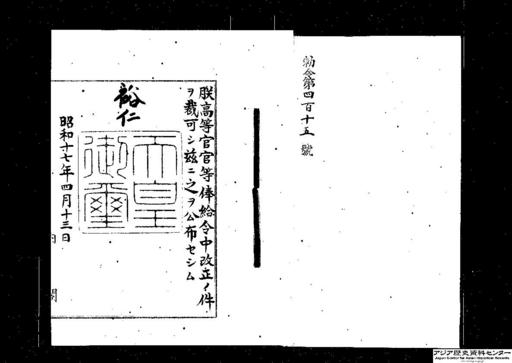 勅令第四百十五號
朕高等官官等俸給令中改正ノ件
ヲ裁可シ茲ニ之ヲ公布セシム
裕仁
天皇
御璽
昭和十七年四月十三日
アジア歴史資料センター
Japan Center for Asian Historical Records